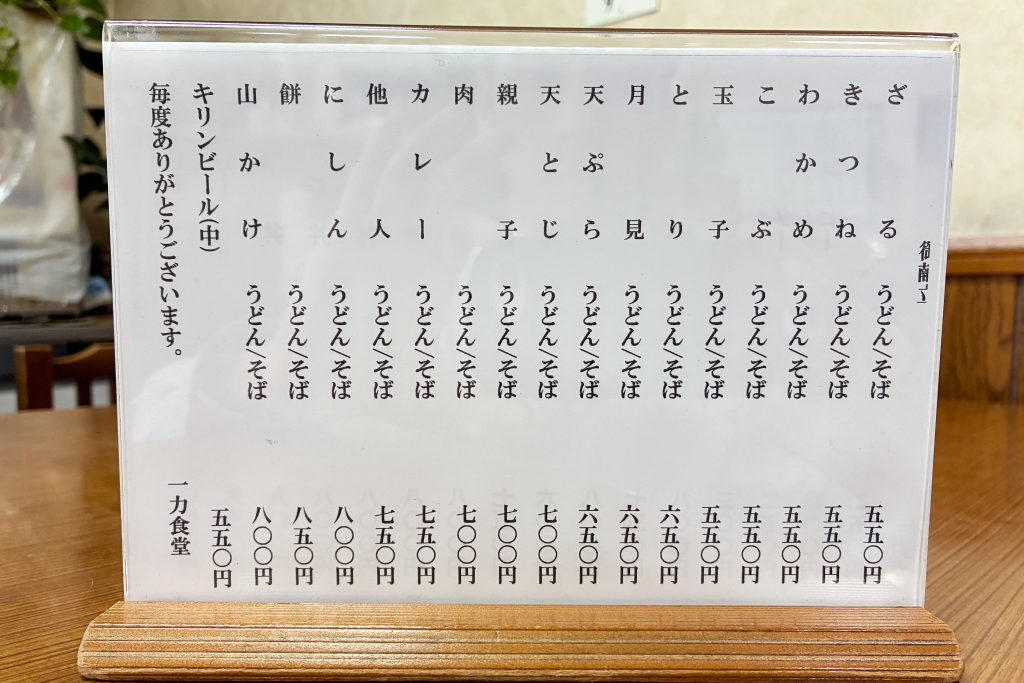 ざる うどん/そば 五五〇円
きつね うどん/そば 五五〇円
わかめ うどん/そば 五五〇円
こぶ うどん/そば 五五〇円
玉子 うどん/そば 五五〇円
とり うどん/そば 六五〇円
月見 うどん/そば 六五〇円
天ぷら うどん/そば 六五〇円
天とじ うどん/そば 七〇〇円
親子 うどん/そば 七〇〇円
肉 うどん/そば 七〇〇円
カレー うどん/そば 七五〇円
他人 うどん/そば 七五〇円
にしん うどん/そば 八〇〇円
餅 うどん/そば 八五〇円
山かけ うどん/そば 八〇〇円
キリンビール(中) 五五〇円
毎度ありがとうございます。 一力食堂